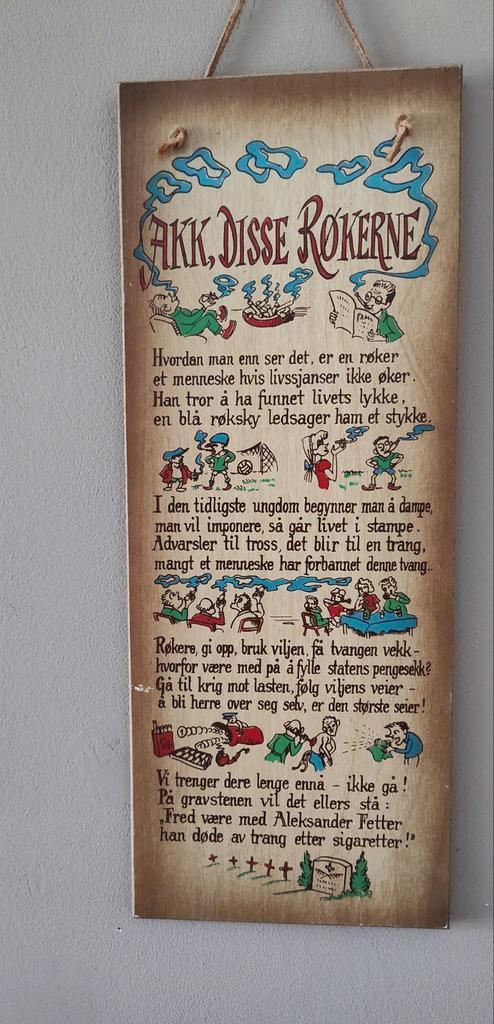 AKK, DISSE RØKERNE
Hvordan man enn ser det, er en røker
et menneske hvis livssjanser ikke øker.
Han tror å ha funnet livets lykke,
en blå røksky ledsager ham et stykke.
I den tidligste ungdom begynner man å dampe,
man vil imponere, så går livet i stampe.
Advarsler til tross, det blir til en trang,
mangt et menneske har forbannet denne tvang..
Røkere, gi opp, bruk viljen, få tvangen vekk -
hvorfor være med på å fylle statens pengesekk?
Gå til krig mot lasten, følg viljens veier -
å bli herre over seg selv, er den største seier!
Vi trenger dere lenge ennå - ikke gå!
På gravstenen vil det ellers stå:
„Fred være med Aleksander Fetter
han døde av trang etter sigaretter!"